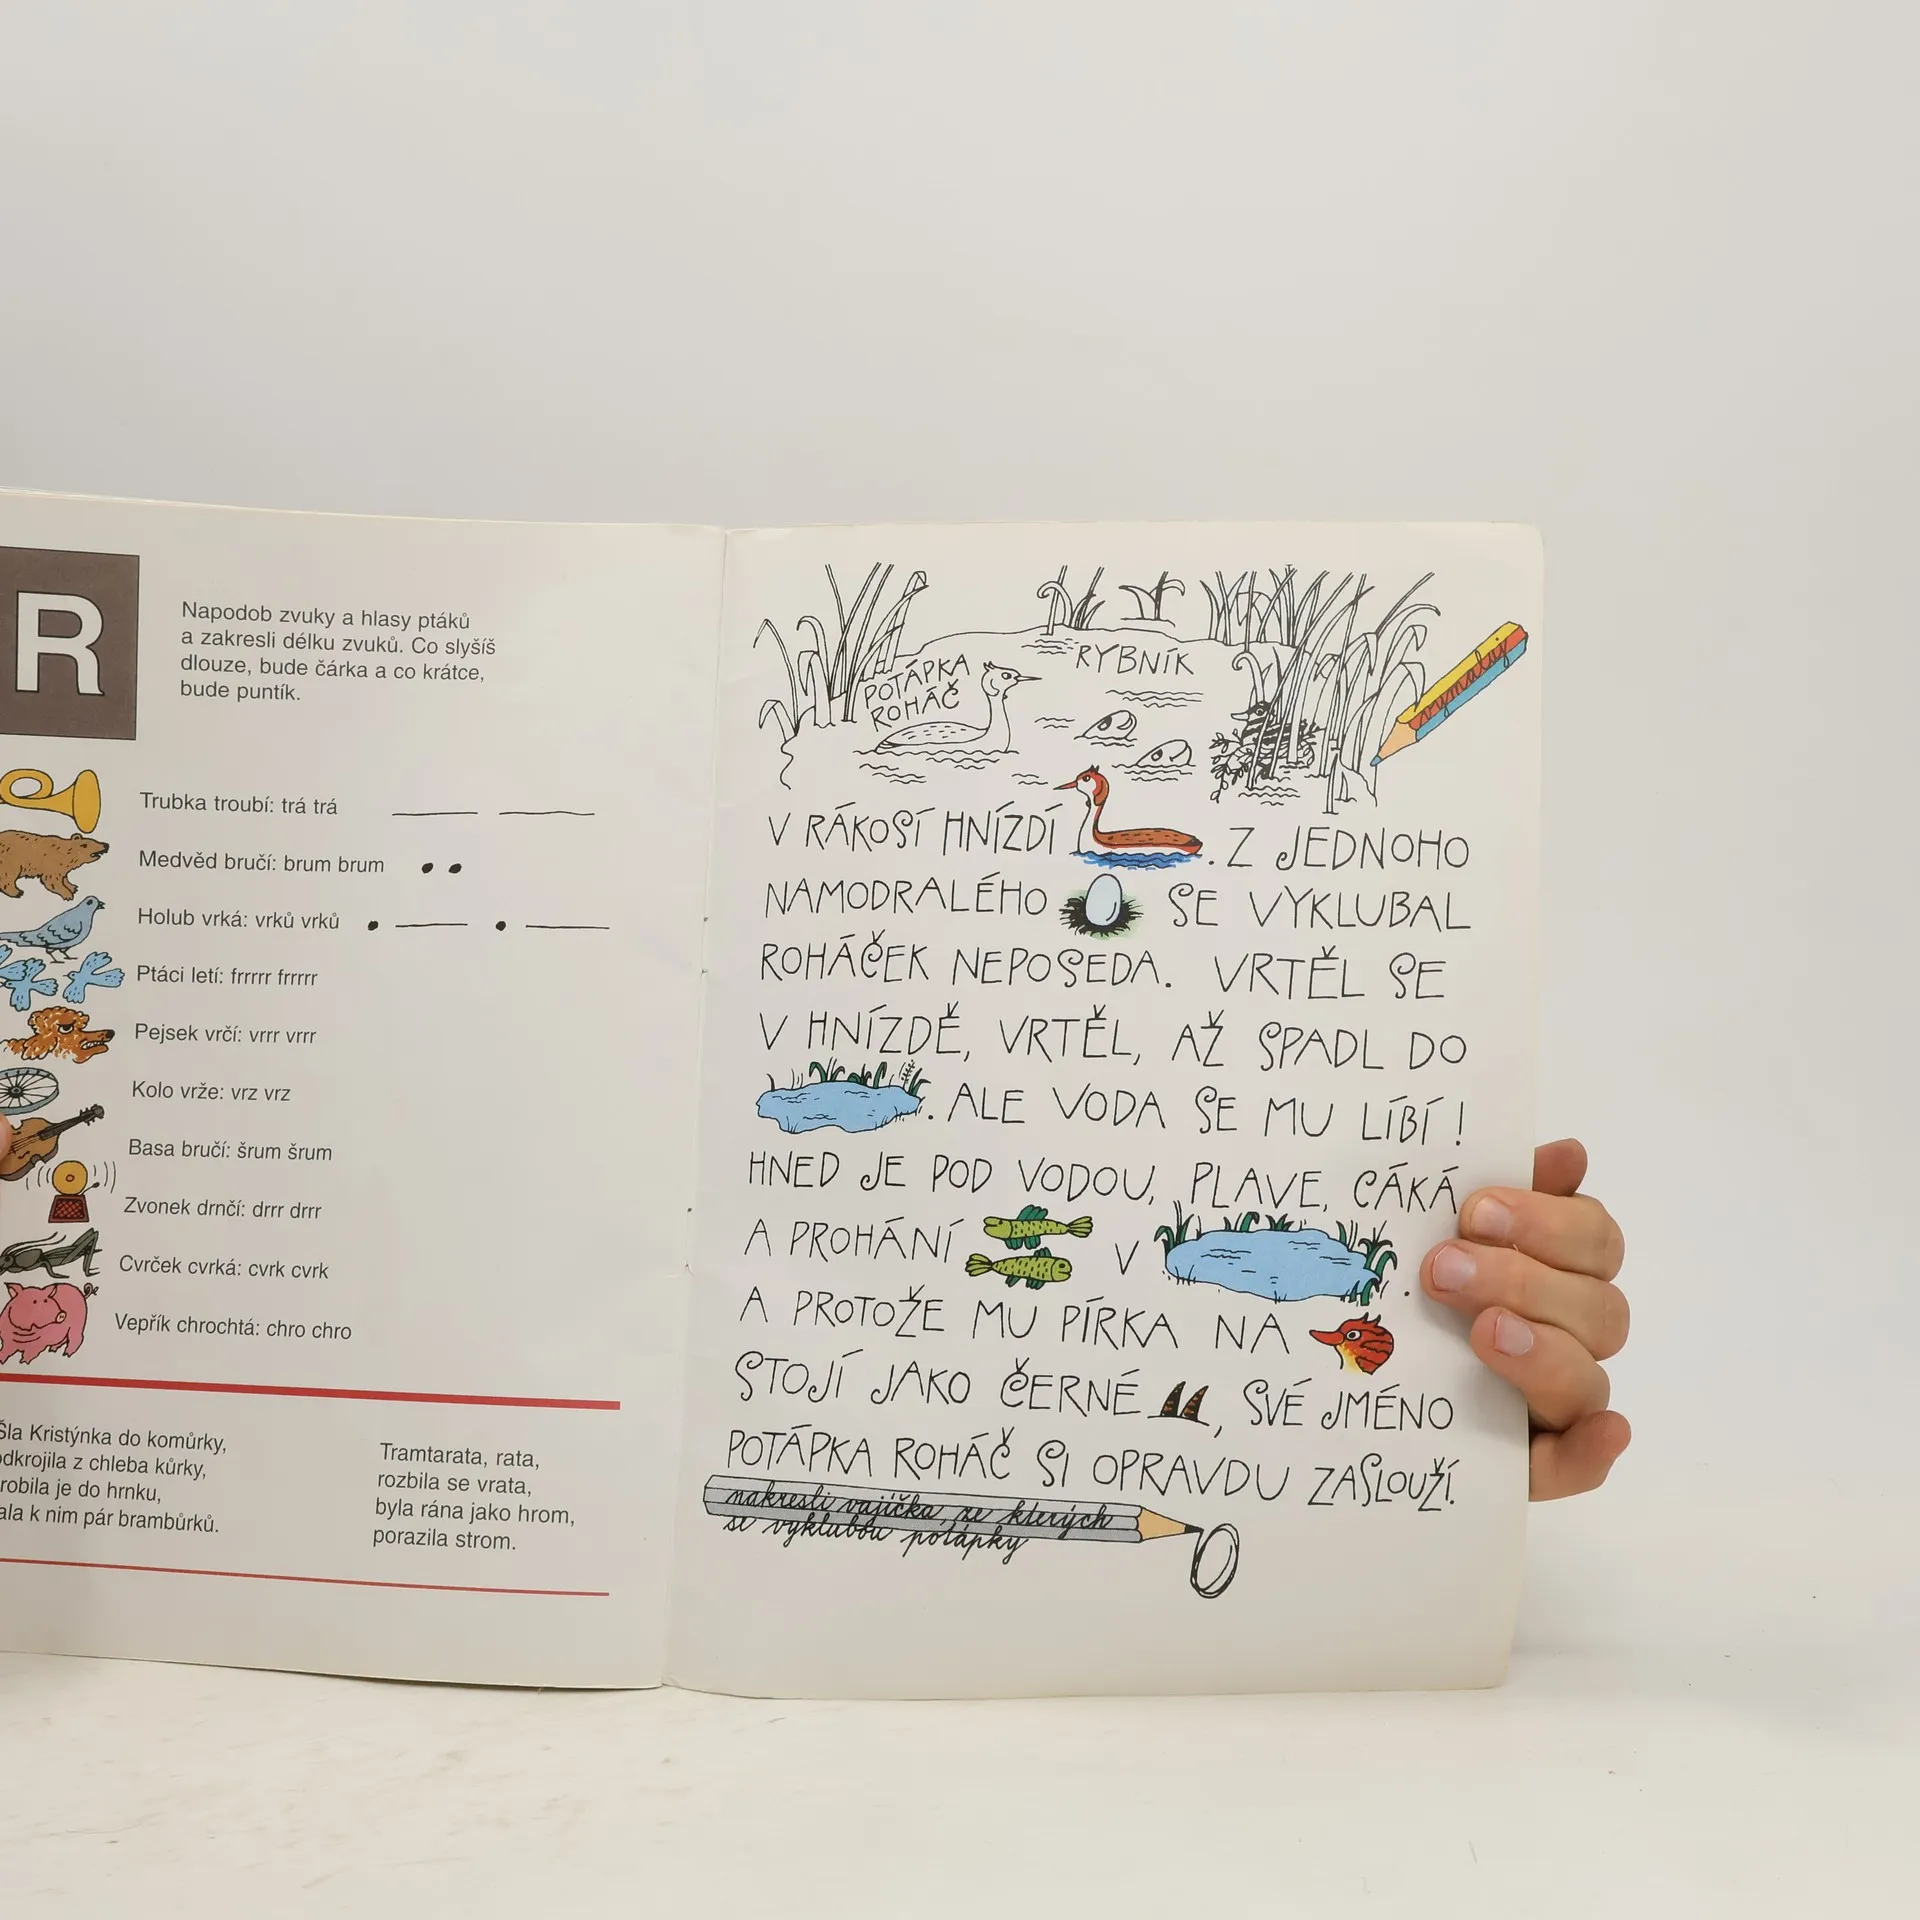 R
Napodob zvuky a hlasy ptáků
a zakresli délku zvuků. Co slyšíš
dlouze, bude čárka a co krátce,
bude puntík.
Trubka troubí: trá trá
Medvěd bručí: brum brum
Holub vrká: vrků vrků
Ptáci letí: frrrrr frrrrr
Pejsek vrčí: vrrr vrrr
Kolo vrže: vrz vrz
Basa bručí: šrum šrum
Zvonek drnčí: drrr drrr
Cvrček cvrká: cvrk cvrk
Vepřík chrochtá: chro chro
Šla Kristýnka do komůrky,
dkrojila z chleba kůrky,
robila je do hrnku,
ala k nim pár brambůrků.
Tramtarata, rata,
rozbila se vrata,
byla rána jako hrom,
porazila strom.
POTÁPKA
ROHÁČ
RYBNÍK
vymaluj
V RÁKOSÍ HNÍZDÍ . Z JEDNOHO
NAMODRALÉHO SE VYKLUBAL
ROHÁČEK NEPOSEDA. VRTĚL SE
V HNÍZDĚ, VRTĚL, AŽ SPADL DO
. ALE VODA SE MU LÍBÍ!
HNED JE POD VODOU, PLAVE, CÁKÁ
A PROHÁNÍ V .
A PROTOŽE MU PÍRKA NA
STOJÍ JAKO ČERNÉ , SVÉ JMÉNO
POTÁPKA ROHÁČ SI OPRAVDU ZASLOUŽÍ.
nakresli vajíčka, ze kterých
se vyklubou potápky